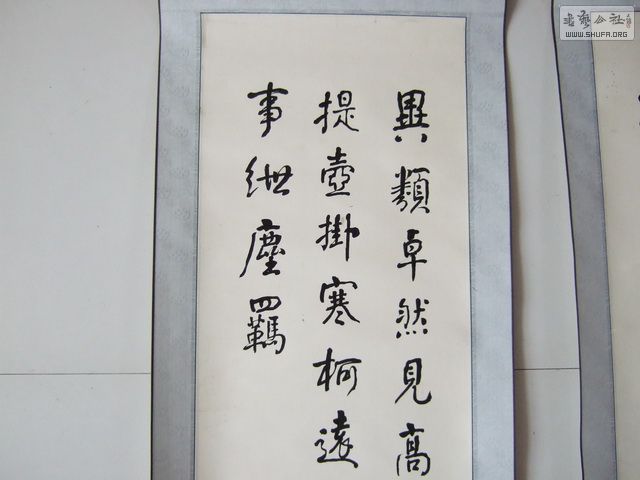 異類卓然見高
提壺掛寒柯遠
事紲塵羈
書藝公社
WWW.SHUFA.ORG